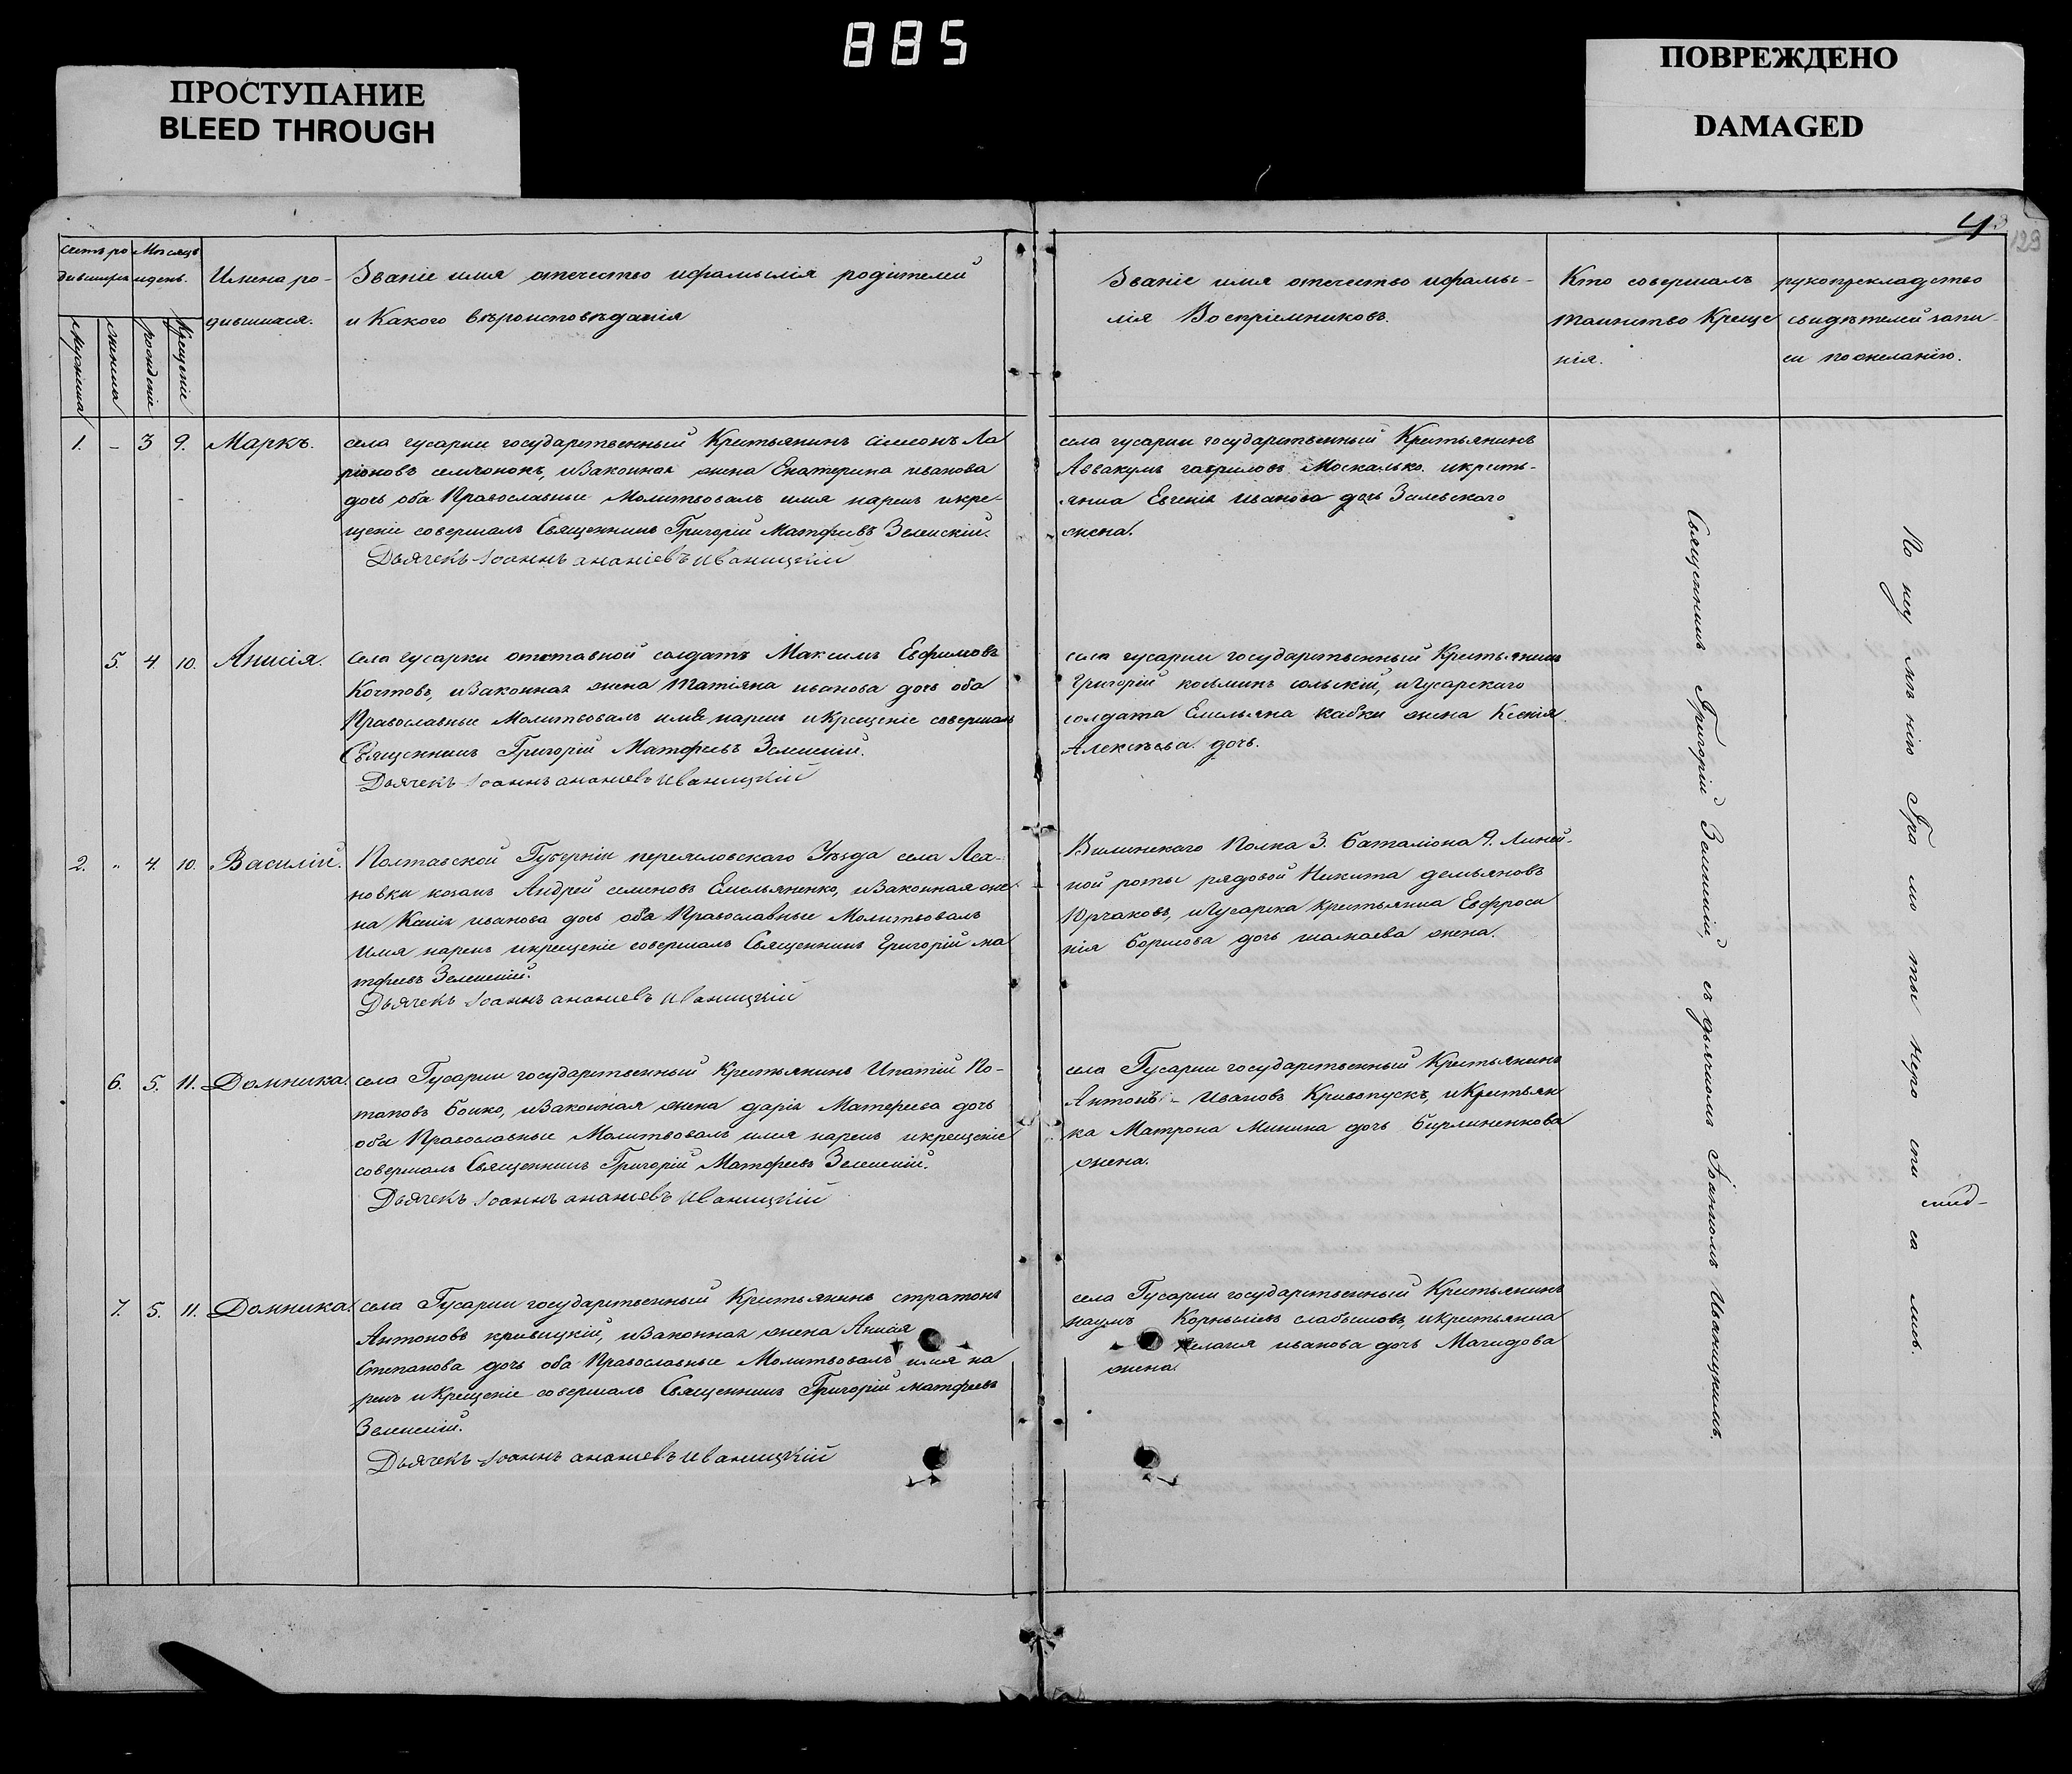 885
ПРОСТУПАНИЕ
BLEED THROUGH
ПОВРЕЖДЕНО
DAMAGED
4
129
Мѣсяцъ
и день.
Имена ро-
дившихся.
Званіе имя отечество и фамылія родителей
и Какого вѣроисповѣданія
Званіе имя отечество и фамы-
лія Воспріемниковъ.
Кто совершалъ
таинство Креще
нія.
рукоприкладство
свидѣтелей запи-
си по желанію.
рожденіе
Крещеніе
1. – 3 9. Маркъ.
села гусарки государственный Крестьянинъ Сімеонъ Ла
ріоновъ и Законная жена Екатерина иванова
дочь оба Православные Молитвовалъ имя нарекъ и кре-
щеніе совершалъ Священникъ Григорій Матфеевъ Зеленскій.
Дьячекъ Іоаннъ ананіевъ иваницкій
села гусарки государственный Крестьянинъ
Аввакумъ гавриловъ Москалько и кресть-
янка Евгенія иванова дочь
жена.
5. 4. 10. Анисія.
села гусарки отставной солдатъ Максимъ Евфимовъ
и Законная жена Татіяна иванова дочь оба
Православные Молитвовалъ имя нарекъ и Крещеніе совершалъ
Священникъ Григорій Матфеевъ Зеленскій.
Дьячекъ Іоаннъ ананіевъ иваницкій
села гусарки государственный Крестьянинъ
Григорій козьминъ и Гусарскаго
солдата Емельяна кабки жена Ксенія
Алексѣева дочь.
2. " 4. 10. Василій.
Полтавской Губерніи переяловскаго Уѣзда села Лех-
новки козакъ Андрей семеновъ Емельяненко, и Законная же
на Ксенія иванова дочь оба Православные Молитвовалъ
Имя нарекъ и крещеніе совершалъ Священникъ Григорій ма
тфеевъ Зеленскій.
Дьячекъ Іоаннъ ананіевъ иваницкій
Виленскаго Полка 3. баталіона 9. Линей-
ной роты рядовой Никита демьяновъ
Юрчаковъ, и Гусарка крестьянка Евфроси
нія борисова дочь шамаева жена.
6. 5. 11. Домника.
села Гусарки государственный Крестьянинъ Ипатій По-
таповъ бойко, и Законная жена дарія Матфеева дочь
оба Православные Молитвовалъ имя нарекъ и крещеніе
совершалъ Священникъ Григорій Матфеевъ Зеленскій.
Дьячекъ Іоаннъ ананіевъ иваницкій
села Гусарки государственный Крестьянинъ
Антонъ – Ивановъ Кривопускъ, и Крестьян
ка Матрона Минина дочь бирлиненкова
жена.
7. 5. 11. Домника.
села Гусарки государственный Крестьянинъ стратонъ
Антоновъ кривицкій, и Законная жена Анисія
Степанова дочь оба Православные Молитвовалъ имя на
рекъ и Крещеніе совершалъ Священникъ Григорій матфеевъ
Зеленскій.
Дьячекъ Іоаннъ ананіевъ иваницкій
села Гусарки государственный Крестьянинъ
наумъ Корныліевъ и крестьянка
пелагія иванова дочь Магидова
жена
Священникъ Григорій Зеленскій, съ дьячкомъ Іоанномъ Иваницкимъ.
По неу мѣ нію Гра мо ты